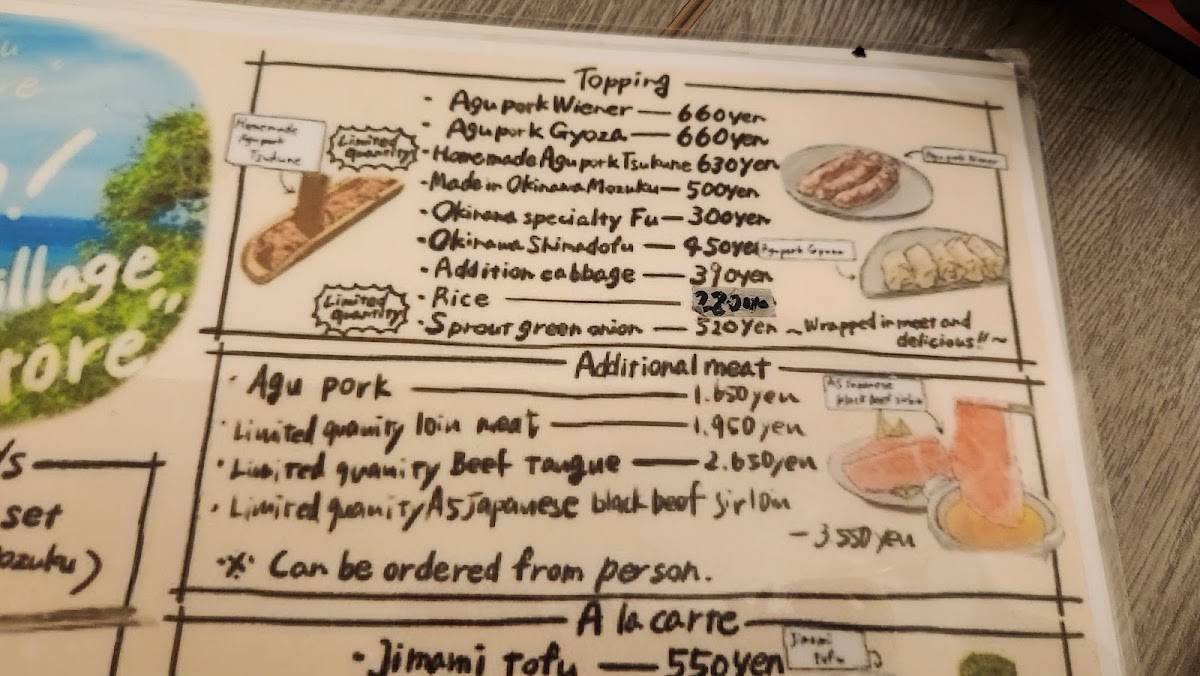 illage
tore"
/s
set
ozuku)
Topping
· Agu pork Wiener — 660yen
· Agu pork Gyoza — 660yen
· Homemade Agu pork Tsukune 630yen
· Made in Okinawa Mozuku — 500yen
· Okinawa specialty Fu — 300yen
· Okinawa Shimadofu — 450yen
· Addition cabbage — 390yen
· Rice — 220yen
· Sprout green onion — 520yen ~Wrapped in meet and
delicious!!~
Homemade
Agu pork
Tsukune
Limited
quantity
Limited
quantity
Agu pork Wiener
Agu pork Gyoza
Additional meat
· Agu pork — 1.650yen
· Limited quanity loin meat — 1.950yen
· Limited quanity Beef Tongue — 2.650yen
· Limired quanity A5 Japanese black beef sirloin
— 3.550yen
※ Can be ordered from person.
A5 Japanese
black beef
A la carre
· Jimami tofu — 550yen
Jimami
tofu